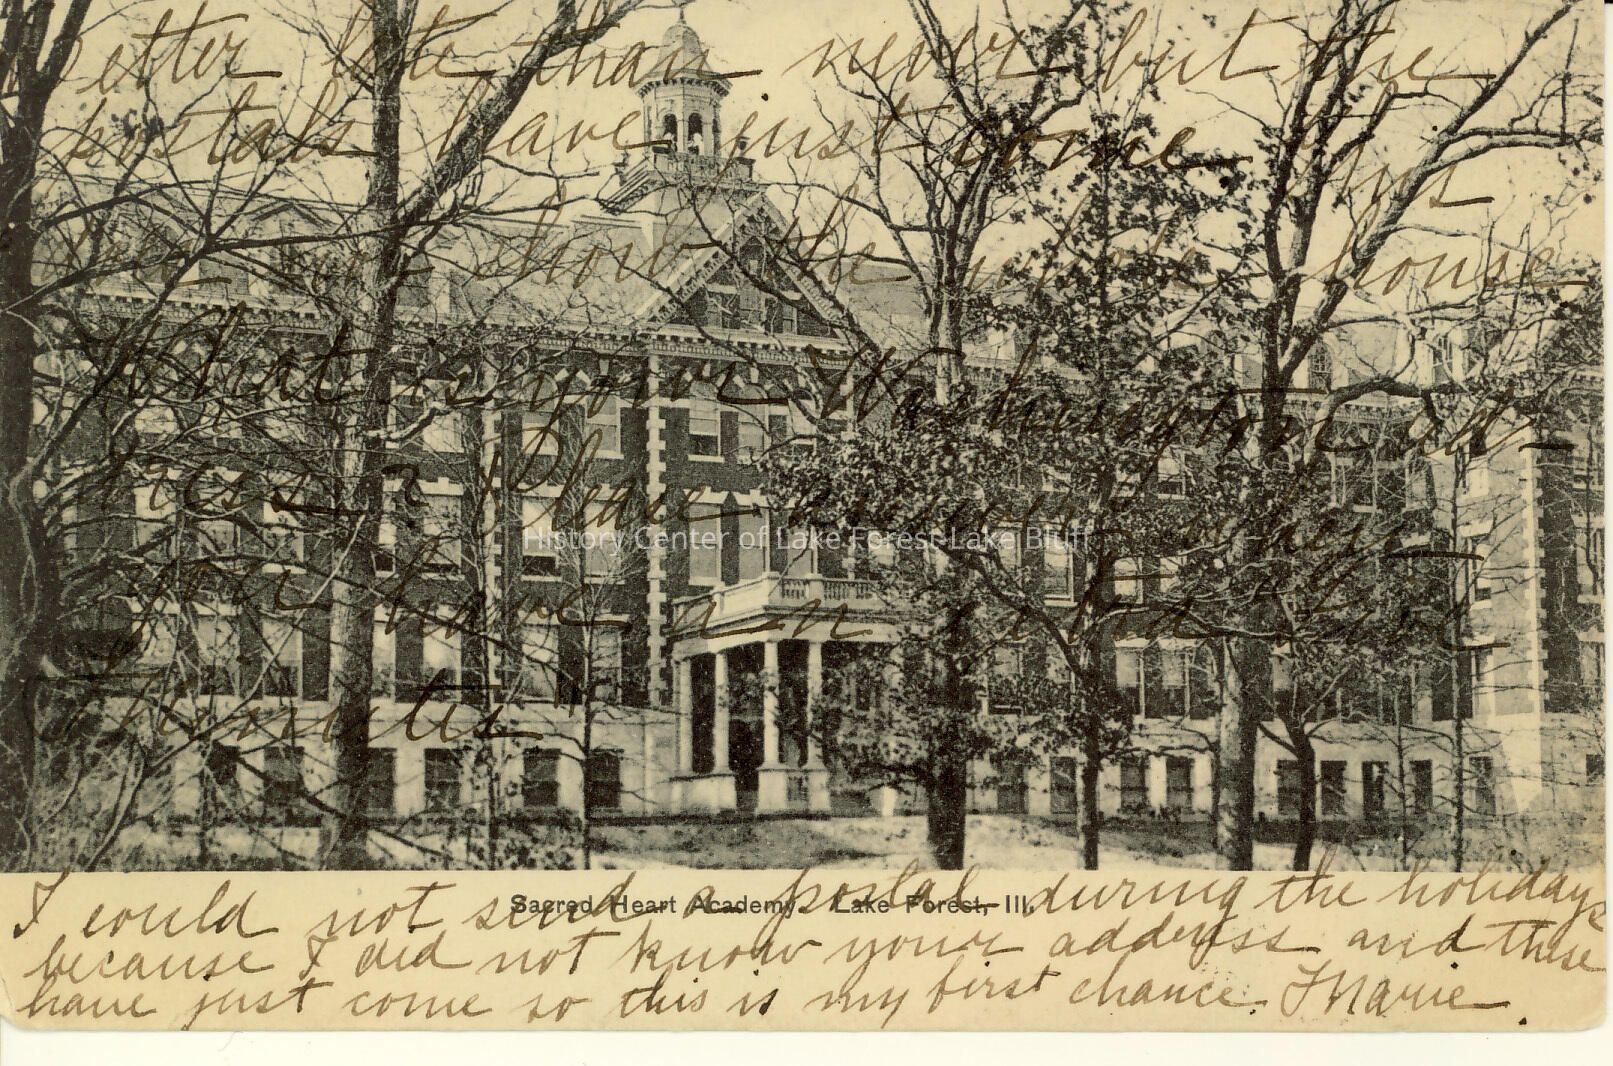 Better late than never but the
postals have just come. This
does not show the whole house
What is your Washington ad-
dress? Please answer when
you have an "idea five
Minutes"
History Center of Lake Forest-Lake Bluff
Sacred Heart Academy. Lake Forest, Ill.
I could not send a postal during the holidays
because I did not know your address and these
have just come so this is my first chance. Marie.